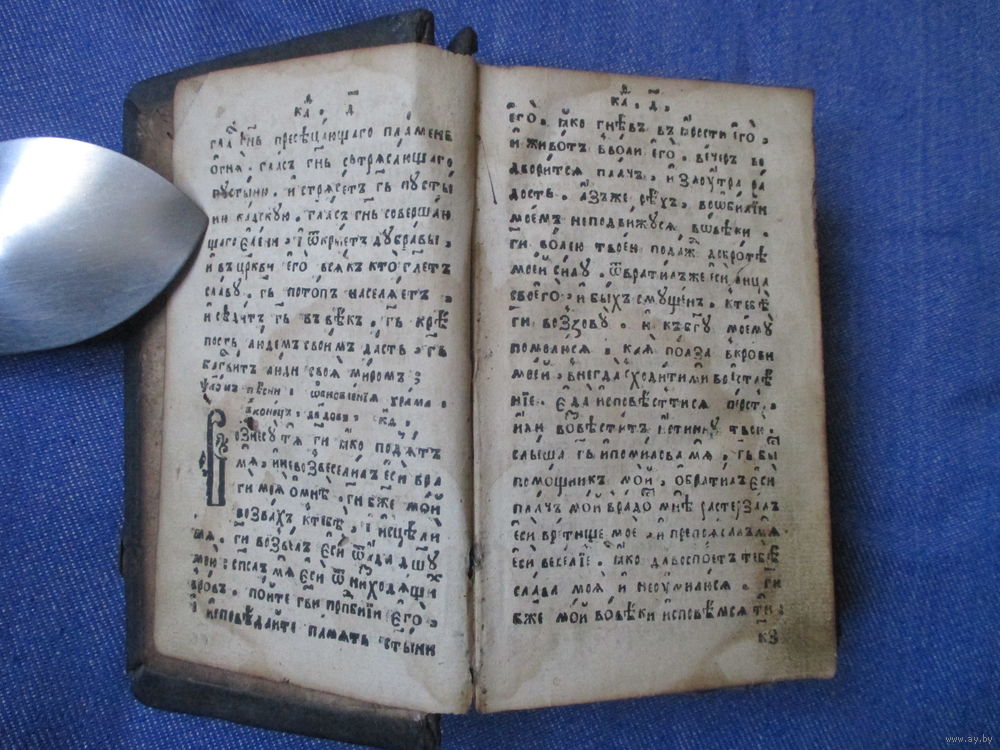 ка . д
гла гнь пресѣцающаго пламень
огня . гласъ гнь сотрясающаго
пустыню . и стрясетъ гь пусты
ню кадскую . гласъ гнь совершаю
щаго елени . і ѿкрыетъ дубравы .
и въ цркви его всякъ кто глетъ
славу . гь потопъ населяетъ .
и сѣдитъ гь въ вѣкъ . гь крѣ
пость людемъ своимъ дастъ . гь
багвитъ люди своя миромъ ;
ѱаломъ пѣсни . ѡбновленія храма .
вконецъ . дадови . кд .
ознесу тя ги яко подятъ
мя . и невозвеселилъ еси вра
ги моя о мнѣ . ги бже мой
возвахъ ктебѣ . і исцѣли
мя . ги возвелъ еси ѿ ада дшу
мою . спслъ мя еси ѿ низходящи
вровъ . пойте гви прпбніи его .
і исповѣдайте память стыни
ка . д .
его . яко гнѣвъ въ ярости его ,
и животъ вволи его . вечеръ во
дворится плачь . и заоутра ра
дость . азъже рѣхъ . воѡбиліи
моемъ неподвижуся , ввѣки .
ги волею твоею подаж добротѣ
моей силу . ѿвратилъже еси лица
своего . и быхъ смущен . ктебѣ
ги воззову . и къ бгу моему
помолюся . кая полза вкрови
моей . внегда сходитими воистлѣ
ніе . еда исповѣсттися персть .
или возвѣститъ истинну твою .
слыша гь и помилова мя . гь бы
помощникъ мой . обратилъ еси
плачь мой врадо мнѣ растерзалъ
еси вретище мое . и препоясалъ мя
еси веселіе . яко давоспоетъ тебѣ
слава моя и неоумилюся . ги
бже мой вовѣки исповѣмся ти .
кз
www.ay.by